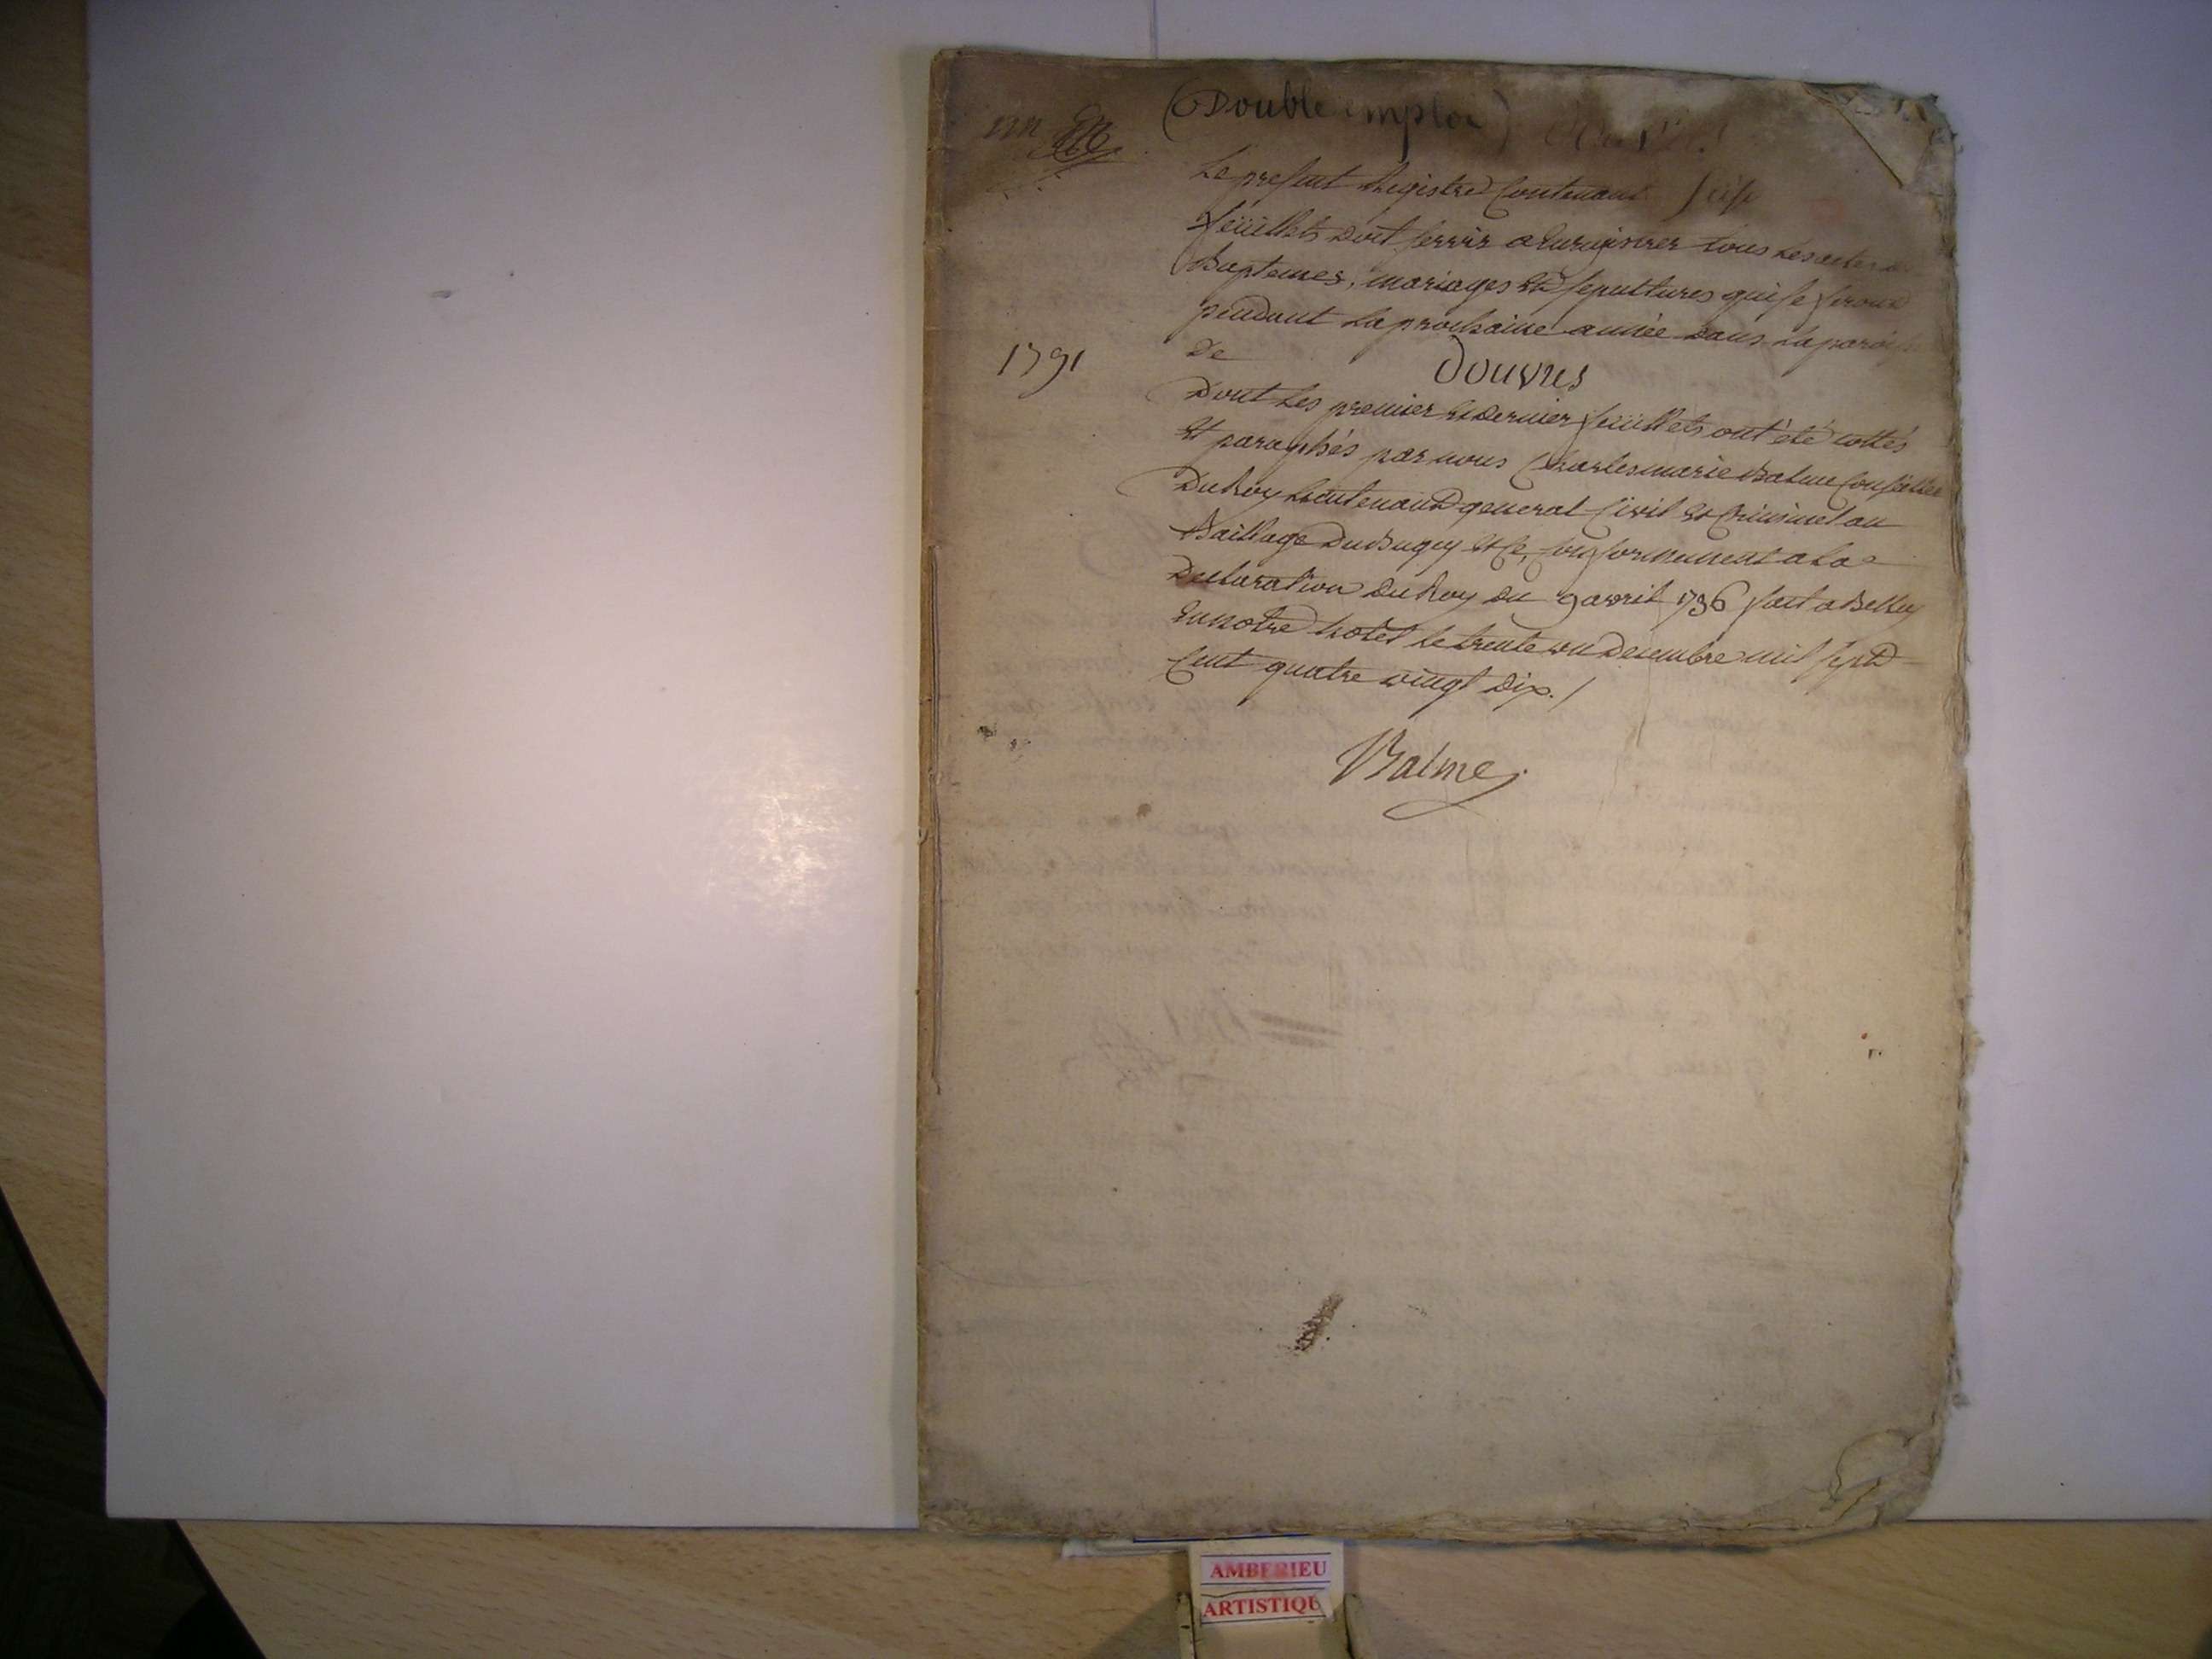 (Double emploi)
Le present Registre Contenant Seise
feüillets doit servir a Enregistrer tous Les actes de
Baptemes, mariages Et sepultures qui se feront
pendant La prochaine année dans La paroisse
1791
De Douvres
Dont Les premier Et Dernier feüillets ont été cottés
Et paraphés par nous Charles marie Balme Conseiller
Du Roy Lieutenant general Civil Et Criminel au
Baillage Du Bugey Et Ce, Conformement a La
Declaration Du Roy du 9 avril 1736 fait a Belley
En notre hotel Le trente un Decembre mil sept
Cent quatre vingt Dix. /
Balme
AMBERIEU
ARTISTIQUE